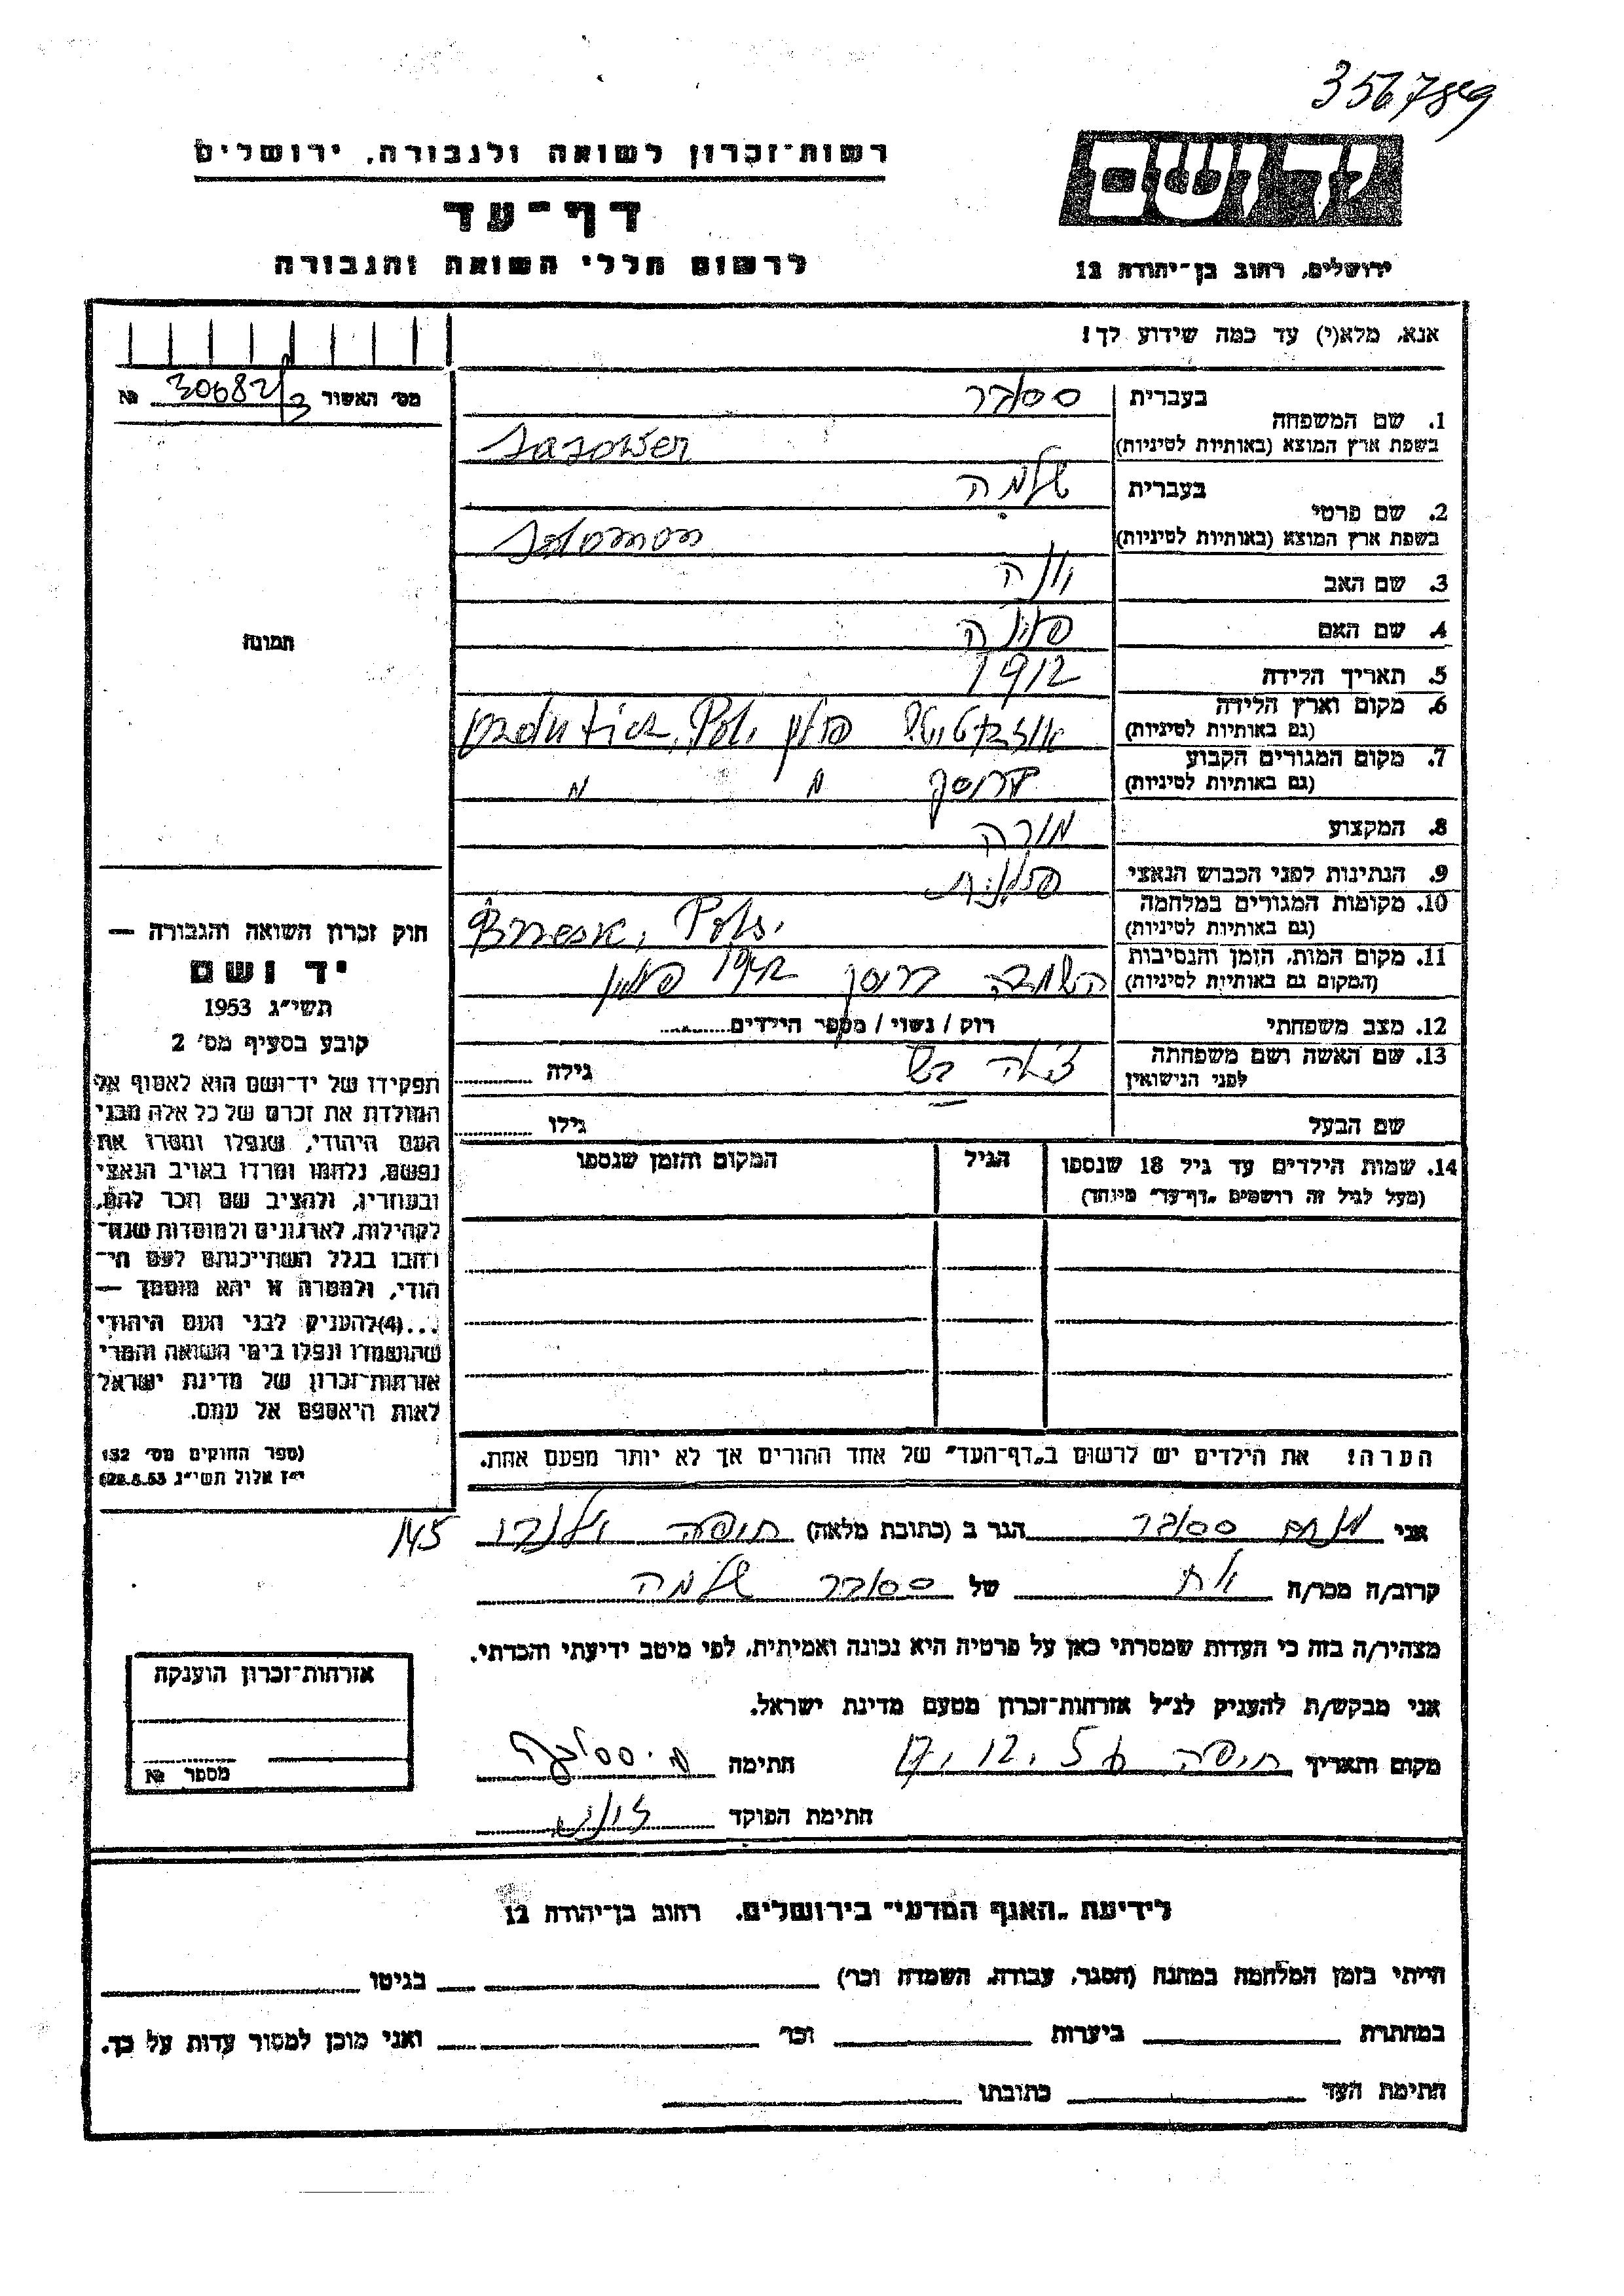 3567849
רשות־זכרון לשואה ולגבורה, ירושלים
דף־עד
לרשום חללי השואה והגבורה
יד ושם
ירושלים, רחוב בן־יהודה 12
אנא, מלא(י) עד כמה שידוע לך!
מס׳ האשור 30682/3 №
1. שם המשפחה בעברית ססובר
בשפת ארץ המוצא (באותיות לטיניות) Sasower
2. שם פרטי בעברית שלמה
בשפת ארץ המוצא (באותיות לטיניות) Solomon
3. שם האב יונה
4. שם האם
5. תאריך הלידה 1912
6. מקום וארץ הלידה פולין Pol.
(גם באותיות לטיניות)
7. מקום המגורים הקבוע
(גם באותיות לטיניות) " "
8. המקצוע מורה
9. הנתינות לפני הכבוש הנאצי פולנית
10. מקומות המגורים במלחמה
(גם באותיות לטיניות) Pols.
11. מקום המות, הזמן והנסיבות 1942 פולין
(המקום גם באותיות לטיניות)
12. מצב משפחתי רוק / נשוי / מספר הילדים
13. שם האשה ושם משפחתה
לפני הנישואין גילה
שם הבעל גילו
14. שמות הילדים עד גיל 18 שנספו הגיל המקום והזמן שנספו
(מעל לגיל זה רושמים „דף־עד״ מיוחד)
הערה! את הילדים יש לרשום ב„דף־העד״ של אחד ההורים אך לא יותר מפעם אחת.
תמונה
חוק זכרון השואה והגבורה —
יד ושם
תשי״ג 1953
קובע בסעיף מס׳ 2
תפקידו של יד־ושם הוא לאסוף אל
המולדת את זכרם של כל אלה מבני
העם היהודי, שנפלו ומסרו את
נפשם, נלחמו ומרדו באויב הנאצי
ובעוזריו, ולהציב שם וזכר להם,
לקהילות, לארגונים ולמוסדות שנח־
רבו בגלל השתייכותם לעם הי־
הודי, ולמטרה זו יהא מוסמך —
...(4)להעניק לבני העם היהודי
שהושמדו ונפלו בימי השואה והמרי
אזרחות־זכרון של מדינת ישראל
לאות היאספם אל עמם.
(ספר החוקים מס׳ 132
י״ז אלול תשי״ג 28.8.53)
אני מנחם ססובר הגר ב (כתובת מלאה) חיפה 145
קרוב/ה מכר/ה אח של ססובר שלמה
מצהיר/ה בזה כי העדות שמסרתי כאן על פרטיה היא נכונה ואמיתית, לפי מיטב ידיעתי והכרתי.
אני מבקש/ת להעניק לנ״ל אזרחות־זכרון מטעם מדינת ישראל.
מקום ותאריך חיפה 17.12.56 חתימה מ. ססובר
חתימת הפוקד
אזרחות־זכרון הוענקה
מספר №
לידיעת „האגף המדעי״ בירושלים, רחוב בן־יהודה 12
הייתי בזמן המלחמה במחנה (הסגר, עבודה, השמדה וכו׳) בגיטו
במחתרת ביערות וכו׳ ואני מוכן למסור עדות על כך.
חתימת העד כתובתו